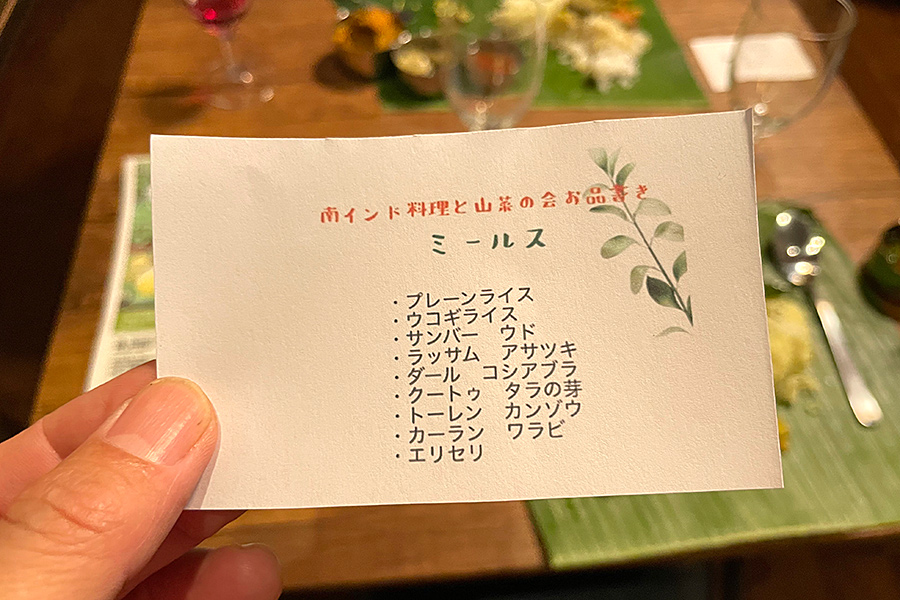 南インド料理と山菜の会お品書き
ミールス
・プレーンライス
・ウコギライス
・サンバー　ウド
・ラッサム　アサツキ
・ダール　コシアブラ
・クートゥ　タラの芽
・トーレン　カンゾウ
・カーラン　ワラビ
・エリセリ